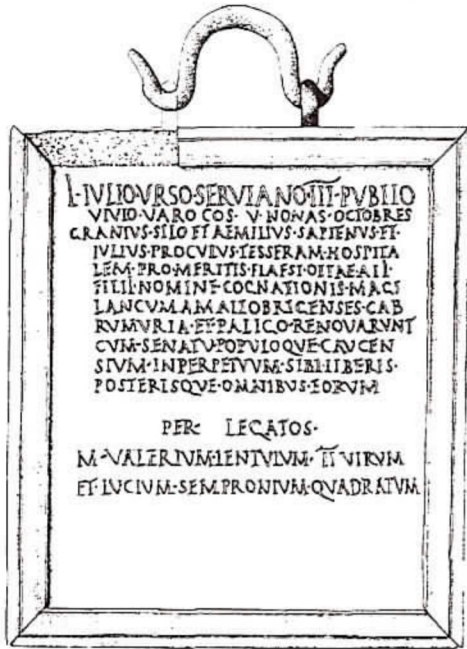 L·IVLIO·VRSO·SERVIANO·III·PVBLIO
VIVIO·VARO COS· V·NONAS·OCTOBRES
GRANIVS·SILO ET AEMILIVS·SAPIENVS·ET·
IVLIVS·PROCVLVS·TESSERAM·HOSPITA
LEM·PRO·MERITIS·ELAESI·OTTAE·AII·
FILII·NOMINE·COGNATIONIS·MAGI
LANCVM·AMALLOBRIGENSES·CAB
RVMVRIA·ET·PALICO·RENOVARVNT
CVM·SENATV·POPVLOQVE·CAVCEN
SIVM·IN·PERPETVVM·SIBI·LIBERIS·
POSTERISQVE·OMNIBVS·EORVM
PER· LEGATOS·
M·VALERIVM·LENTVLVM·II VIRVM
ET·LVCIVM·SEMPRONIVM·QVADRATVM